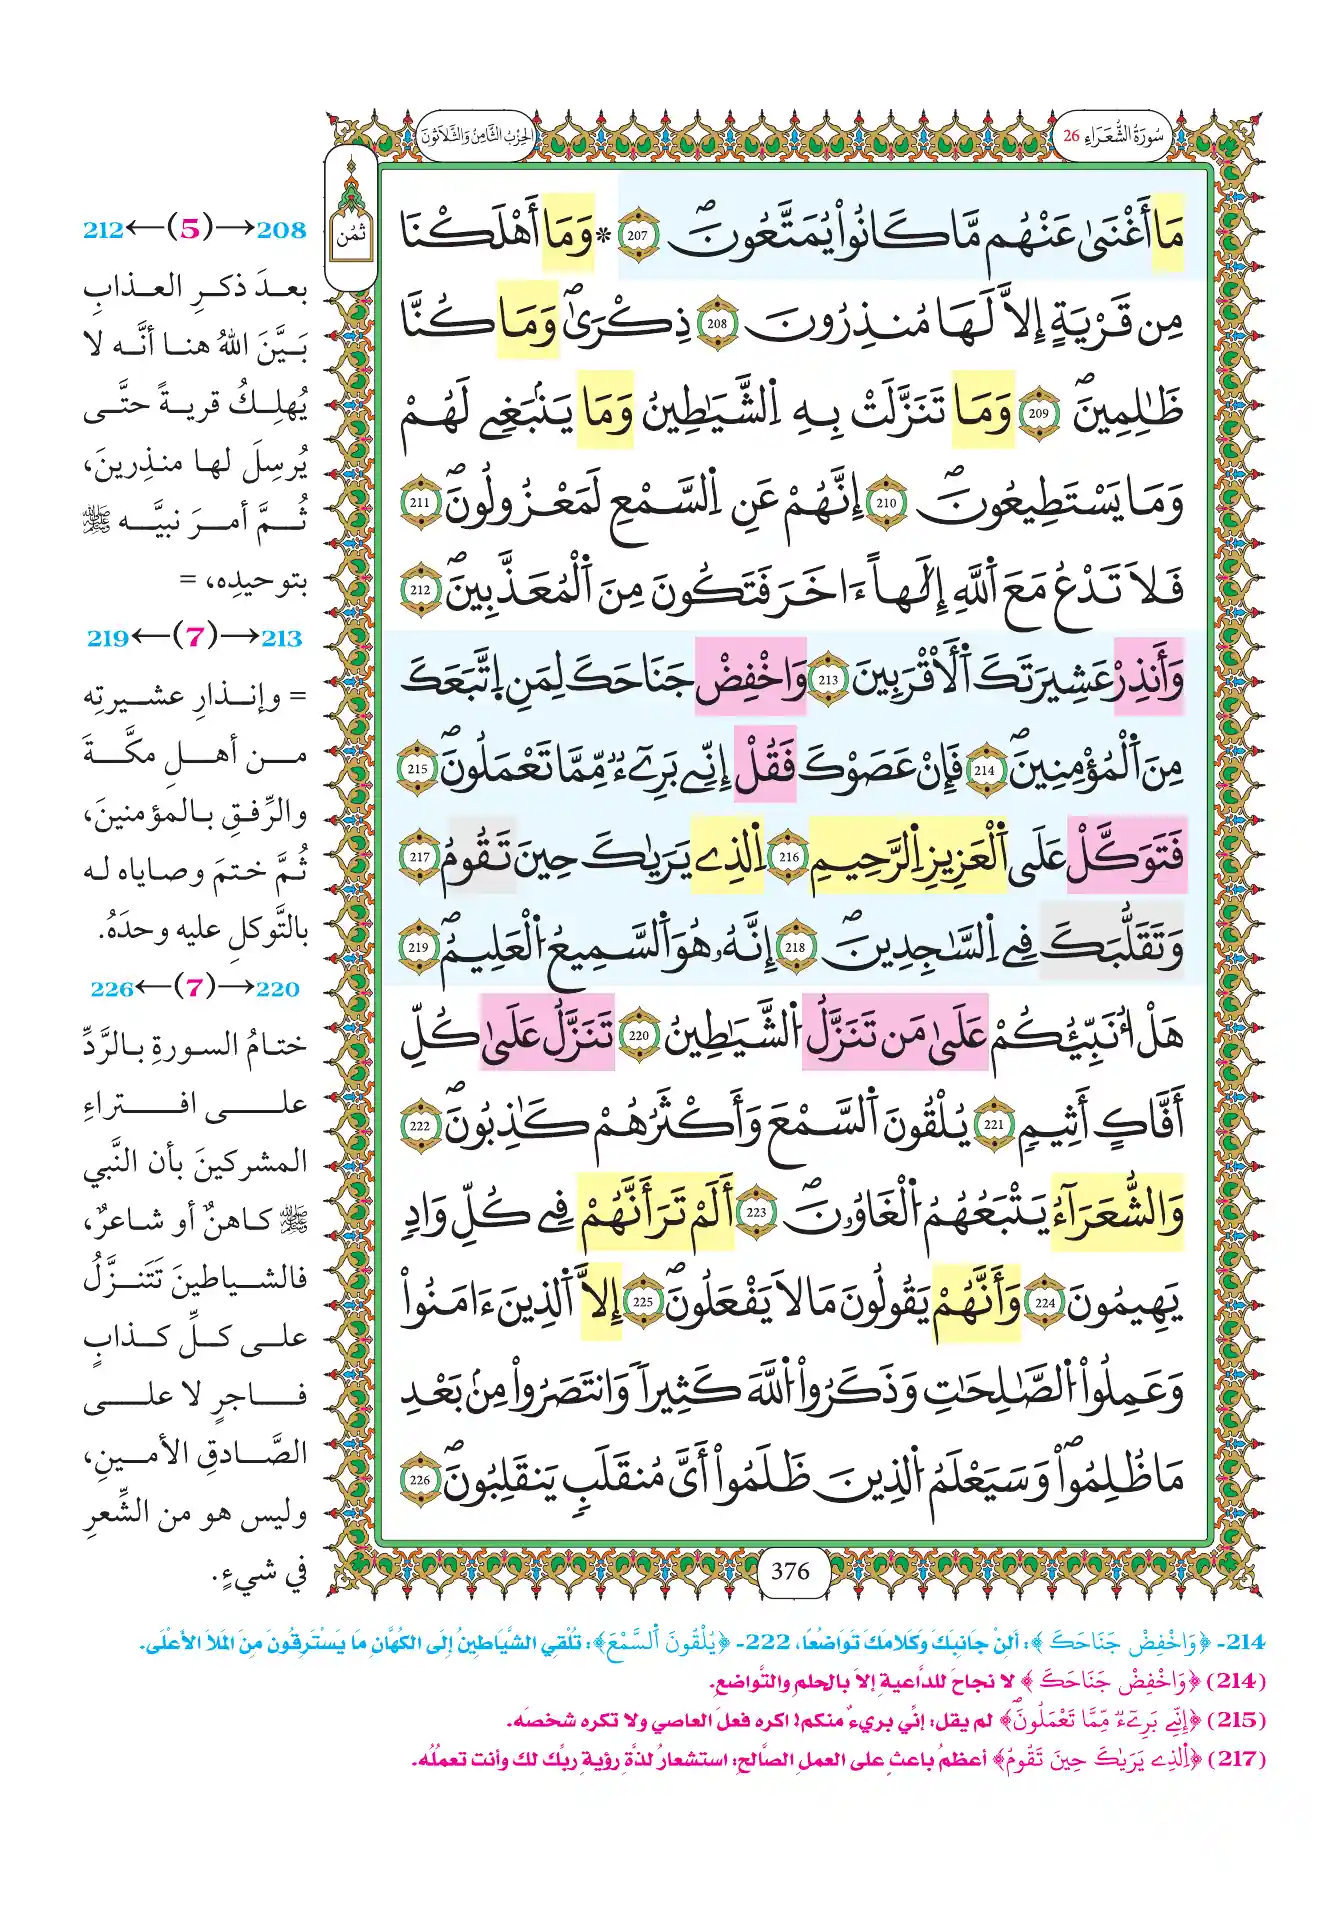 سُورَةُ الشُّعَرَاءِ 26
الحِزْبُ الثَّامِنُ وَالثَّلَاثُونَ
ثُمُن
مَا أَغْنَىٰ عَنْهُم مَّا كَانُواْ يُمَتَّعُونَۖ 207 * وَمَا أَهْلَكْنَا
مِن قَرْيَةٍ إِلاَّ لَهَا مُنذِرُونَۖ 208 ذِكْرَىٰۖ وَمَا كُنَّا
ظَٰلِمِينَۖ 209 وَمَا تَنَزَّلَتْ بِهِ اِ۬لشَّيَٰطِينُ وَمَا يَنۢبَغِے لَهُمْ
وَمَا يَسْتَطِيعُونَۖ 210 إِنَّهُمْ عَنِ اِ۬لسَّمْعِ لَمَعْزُولُونَۖ 211
فَلَا تَدْعُ مَعَ اَ۬للَّهِ إِلَٰهاً ءَاخَرَ فَتَكُونَ مِنَ اَ۬لْمُعَذَّبِينَۖ 212
وَأَنذِرْ عَشِيرَتَكَ اَ۬لْأَقْرَبِينَ 213 وَاخْفِضْ جَنَاحَكَ لِمَنِ اِ۪تَّبَعَكَ
مِنَ اَ۬لْمُؤْمِنِينَۖ 214 فَإِنْ عَصَوْكَ فَقُلْ إِنِّے بَرِےٓءٞ مِّمَّا تَعْمَلُونَۖ 215
فَتَوَكَّلْ عَلَى اَ۬لْعَزِيزِ اِ۬لرَّحِيمِ 216 اِ۬لذِے يَرَىٰكَ حِينَ تَقُومُ 217
وَتَقَلُّبَكَ فِے اِ۬لسَّٰجِدِينَۖ 218 إِنَّهُۥ هُوَ اَ۬لسَّمِيعُ اُ۬لْعَلِيمُۖ 219
هَلْ أُنَبِّئُكُمْ عَلَىٰ مَن تَنَزَّلُ اُ۬لشَّيَٰطِينُ 220 تَنَزَّلُ عَلَىٰ كُلِّ
أَفَّاكٍ أَثِيمٖ 221 يُلْقُونَ اَ۬لسَّمْعَ وَأَكْثَرُهُمْ كَٰذِبُونَۖ 222
وَالشُّعَرَآءُ يَتْبَعُهُمُ اُ۬لْغَاوُۥنَۖ 223 أَلَمْ تَرَ أَنَّهُمْ فِے كُلِّ وَادٖ
يَهِيمُونَ 224 وَأَنَّهُمْ يَقُولُونَ مَا لَا يَفْعَلُونَۖ 225 إِلاَّ اَ۬لذِينَ ءَامَنُواْ
وَعَمِلُواْ اُ۬لصَّٰلِحَٰتِ وَذَكَرُواْ اُ۬للَّهَ كَثِيراٗ وَانتَصَرُواْ مِنۢ بَعْدِ
مَا ظُلِمُواْۖ وَسَيَعْلَمُ اُ۬لذِينَ ظَلَمُواْ أَىَّ مُنقَلَبٖ يَنقَلِبُونَۖ 226
376
208→(5)←212
بعدَ ذكرِ العذابِ
بَيَّنَ اللهُ هنا أنَّه لا
يُهلِكُ قريةً حتَّى
يُرسِلَ لها منذِرينَ،
ثُمَّ أمرَ نبيَّه ﷺ
بتوحيدِه، =
213→(7)←219
= وإنذارِ عشيرتِه
من أهلِ مكَّةَ
والرِّفقِ بالمؤمنينَ،
ثُمَّ ختمَ وصاياه له
بالتَّوكلِ عليه وحدَهُ.
220→(7)←226
ختامُ السورةِ بالرَّدِّ
على افتراءِ
المشركينَ بأن النَّبي
ﷺ كاهنٌ أو شاعرٌ،
فالشياطينَ تَتَنزَّلُ
على كلِّ كذابٍ
فاجرٍ لا على
الصَّادقِ الأمينِ،
وليس هو من الشِّعرِ
في شيءٍ.
214- ﴿وَاخْفِضْ جَنَاحَكَ﴾: أَلِنْ جَانِبَكَ وَكَلَامَكَ تَوَاضُعًا، 222- ﴿يُلْقُونَ اَ۬لسَّمْعَ﴾: تُلْقِي الشَّيَاطِينُ إِلَى الكُهَّانِ مَا يَسْتَرِقُونَ مِنَ المَلَأِ الأَعْلَى.
(214) ﴿وَاخْفِضْ جَنَاحَكَ﴾ لا نجاحَ للدَّاعيةِ إلا بالحلمِ والتَّواضعِ.
(215) ﴿إِنِّے بَرِےٓءٞ مِّمَّا تَعْمَلُونَۖ﴾ لم يقل: إنِّي بريءٌ منكم! اكره فعلَ العاصي ولا تكره شخصَه.
(217) ﴿اِ۬لذِے يَرَىٰكَ حِينَ تَقُومُ﴾ أعظمُ باعثٍ على العملِ الصَّالحِ: استشعارُ لذَّةِ رؤيةِ ربِّكَ لك وأنت تعملُه.